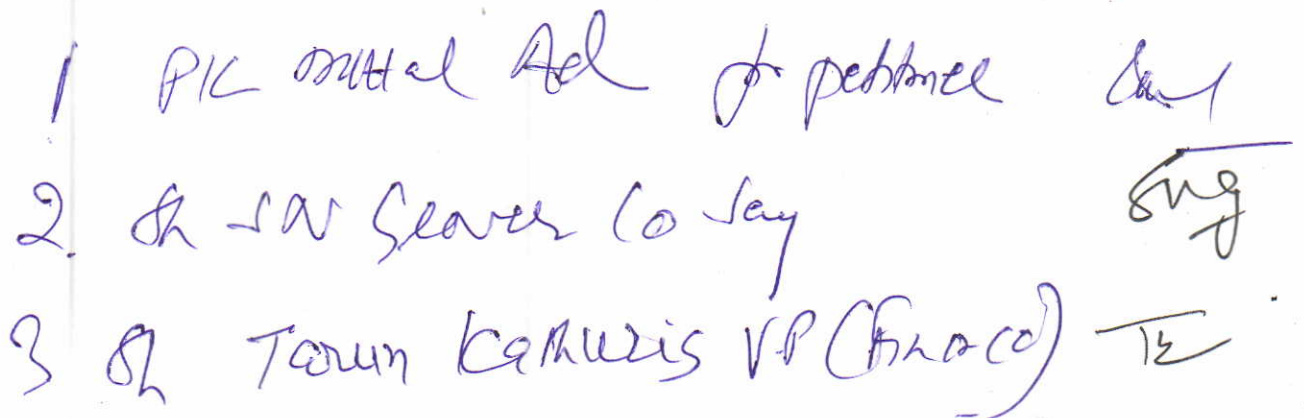 1 PK Mittal Ad for petitioner
2. Sh SN Grover Co Secy SNg
3 Sh Tarun Kathuria VP (Finance) TK